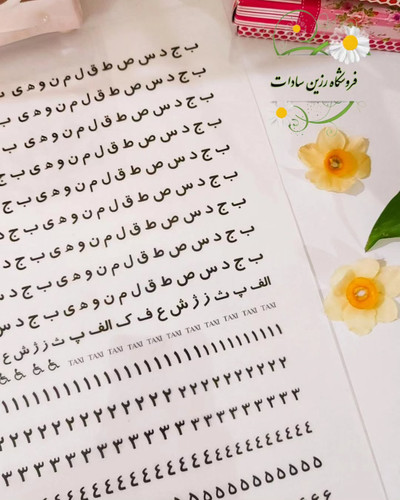 فروشگاه رزین سادات
ب ج د س ص ط ق ل م ن و ه ی ب
ب ج د س ص ط ق ل م ن و ه ی ب
ب ج د س ص ط ق ل م ن و ه ی ب
ب ج د س ص ط ق ل م ن و ه ی ب
ب ج د س ص ط ق ل م ن و ه ی ب ج
ب ج د س ص ط ق ل م ن و ه ی ب ج
ب ج د س ص ط ق ل م ن و ه ی ب ج د
ب ج د س ص ط ق ل م ن و ه ی ب ج د
ب ج د س ص ط ق ل م ن و ه ی ب ج د س
الف پ ث ز ژ ش ع ف ک الف پ ث ز ژ ش ع
TAXI TAXI TAXI TAXI TAXI TAXI TAXI TAXI TAXI TAXI TAXI
۱ ۱ ۱ ۱ ۱ ۱ ۱ ۱ ۱ ۱ ۱ ۱ ۱ ۱ ۱ ۱ ۱ ۱ ۱ ۱ ۱ ۱ ۱ ۱ ۱ ۱ ۱
۲ ۲ ۲ ۲ ۲ ۲ ۲ ۲ ۲ ۲ ۲ ۲ ۲ ۲ ۲ ۲ ۲ ۲ ۲ ۲ ۲ ۲
۳ ۳ ۳ ۳ ۳ ۳ ۳ ۳ ۳ ۳ ۳ ۳ ۳ ۳ ۳ ۳ ۳ ۳ ۳ ۳
٤ ٤ ٤ ٤ ٤ ٤ ٤ ٤ ٤ ٤ ٤ ٤ ٤ ٤ ٤ ٤ ٤ ٤ ٤ ٤ ٤
۵ ۵ ۵ ۵ ۵ ۵ ۵ ۵ ۵ ۵ ۵ ۵
۶